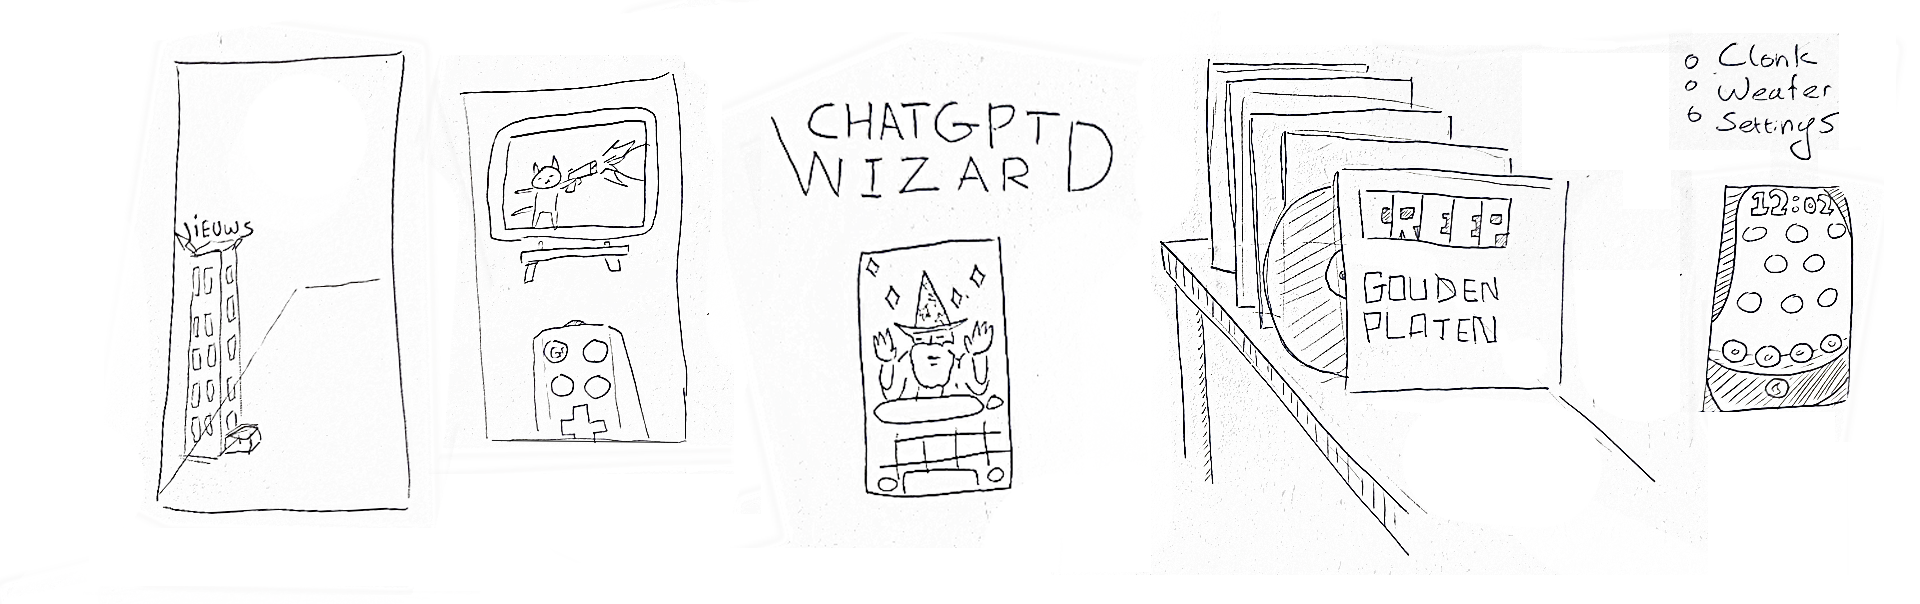 NiEUWS
G
CHATGPT
WIZARD
CREEP
GOUDEN
PLATEN
Clonk
Weafer
Settings
12:02